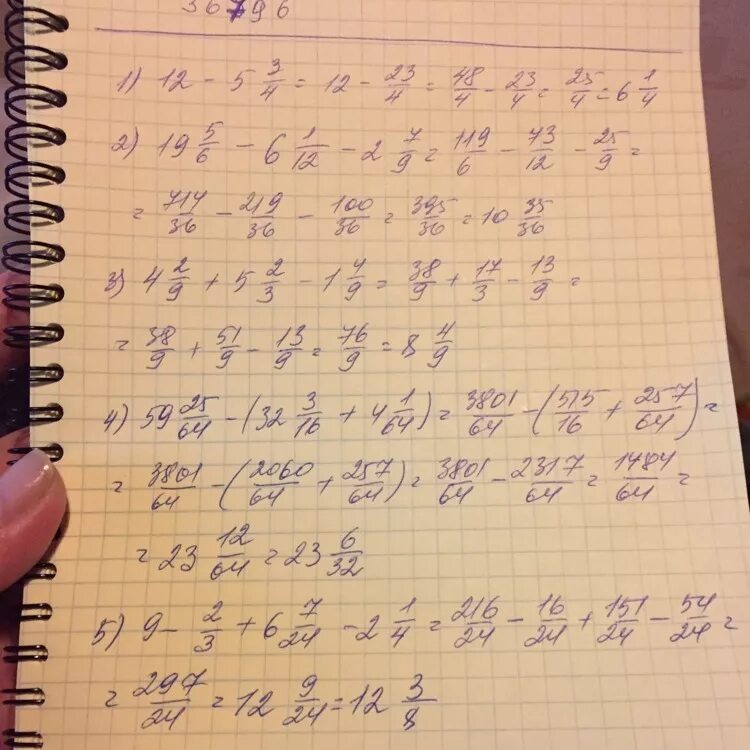 36796
1) 12 - 5 3/4 = 12 - 23/4 = 48/4 - 23/4 = 25/4 = 6 1/4
2) 19 5/6 - 6 1/12 - 2 7/9 = 119/6 - 73/12 - 25/9 =
= 714/36 - 219/36 - 100/36 = 395/36 = 10 35/36
3) 4 2/9 + 5 2/3 - 1 4/9 = 38/9 + 17/3 - 13/9 =
= 38/9 + 51/9 - 13/9 = 76/9 = 8 4/9
4) 59 25/64 - (32 3/16 + 4 1/64) = 3801/64 - (515/16 + 257/64) =
= 3801/64 - (2060/64 + 257/64) = 3801/64 - 2317/64 = 1484/64 =
= 23 12/64 = 23 6/32
5) 9 - 2/3 + 6 7/24 - 2 1/4 = 216/24 - 16/24 + 151/24 - 54/24 =
= 297/24 = 12 9/24 = 12 3/8